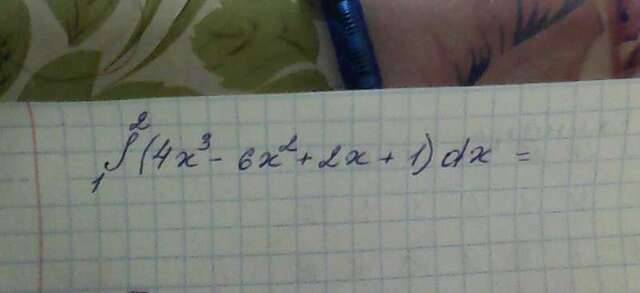 ∫₁² (4x³ - 6x² + 2x + 1) dx =